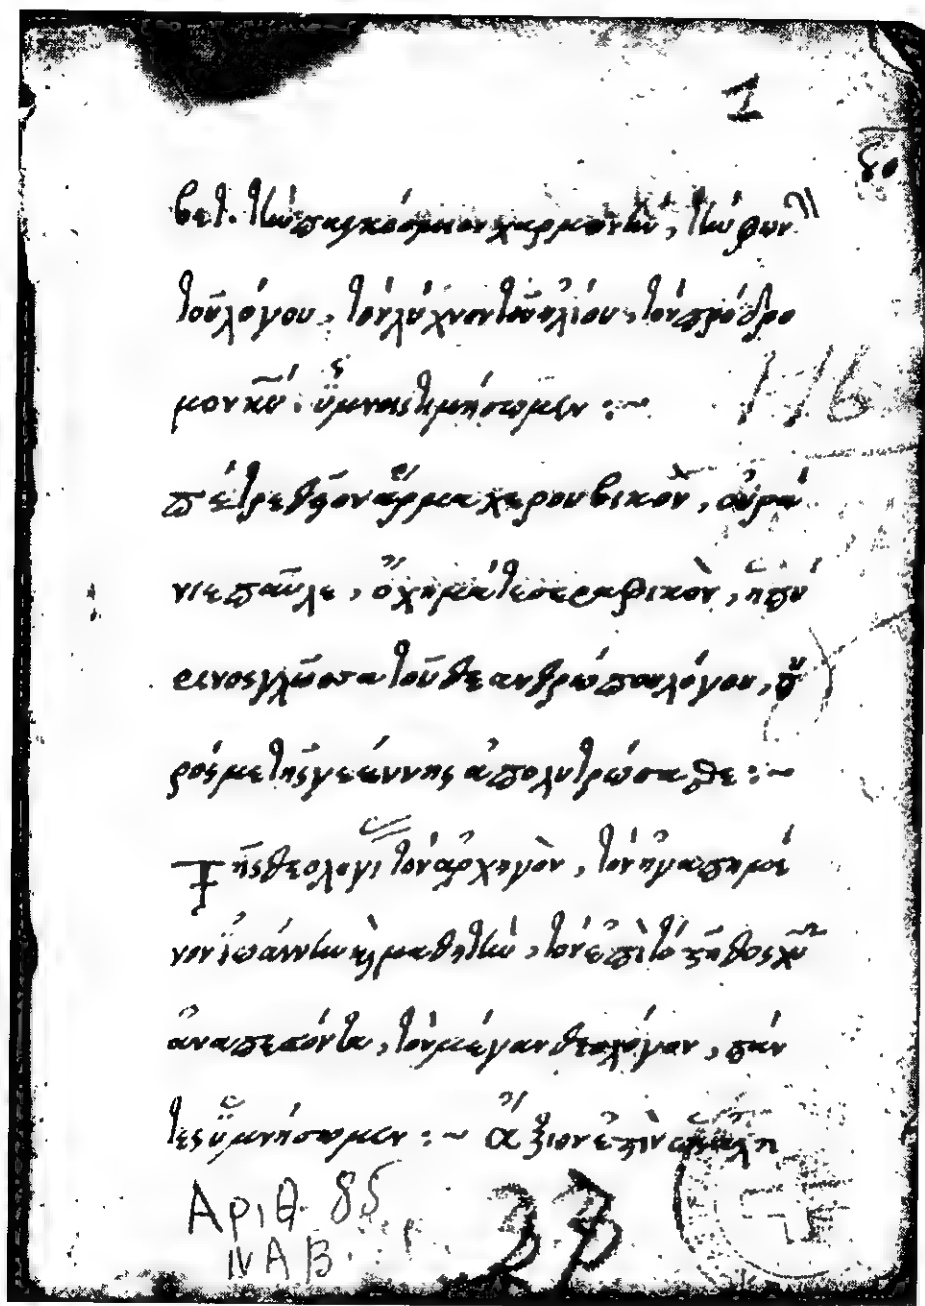 1
80
βετ. τὴν παγκόσμιον χαρμονὴν, τὴν φων
τοῦ λόγου, τὸν λύχνον τοῦ ἡλίου, τὸν πρόδρο
μον κυ̃, ὕμνοις τιμήσωμεν :~
116
πέτρε θεῖον ἅρμα χερουβικὸν, οὐρά
νιε παῦλε, ὄχημά τε σεραφικὸν, ἡ πύ
ρινος γλῶσσα τοῦ θεανθρώπου λόγου, πυ
ρός με τῆς γεέννης ἀπολυτρώσασθε :~
Τῆς θεολογί τὸν ἀρχηγὸν, τὸν ἠγαπημέ
νον ἰωάννην κ̀ μαθητὴν, τὸν ἐπὶ τὸ στῆθος χυ̃
ἀναπεσόντα, τὸν μέγαν θεολόγον, πάν
τες ὑμνήσωμεν :~ ἄξιόν ἐστὶν
Αριθ. 85
ΝΑΒ
33